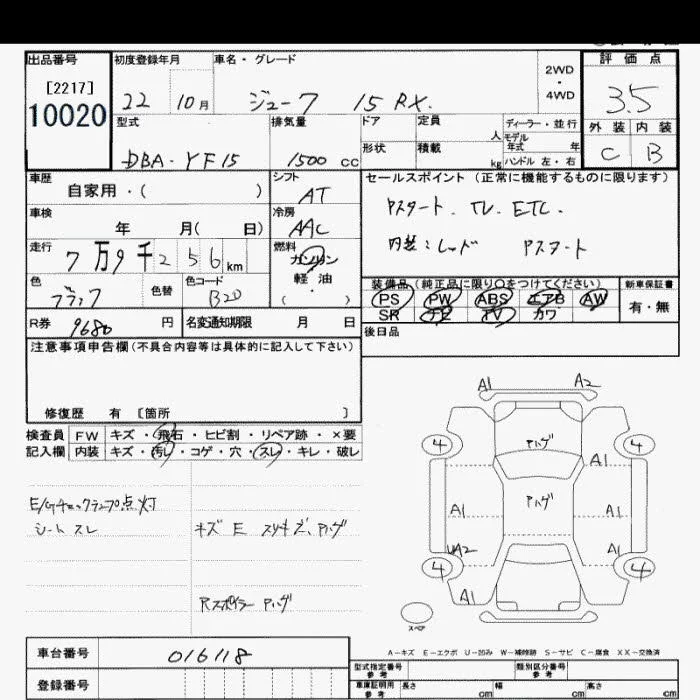 出品番号 初度登録年月 車名・グレード 2WD ・ 4WD 評価点
[2217]
10020
22 10月 ジューク 15 RX. 3.5
型式 排気量 ドア 定員 人 ディーラー・並行
モデル 年式 年
外装 内装
DBA-YF15 1500 cc 形状 積載 kg ハンドル 左・右 C B
車歴 シフト セールスポイント (正常に機能するものに限ります)
自家用・( ) AT
Pスタート. TV. ETC.
車検 冷房
年 月( 日) AAC
内装:レッド Pスタート
走行 燃料
7万9千256km ガソリン
軽・油
( )
色 色替 色コード
ブラック B20
装備品(純正品に限り○をつけてください) 新車保証書
PS PW ABS エアB AW 有・無
SR ナビ TV カワ
R券 9680 円 名変通知期限 月 日
後日品
注意事項申告欄(不具合内容等は具体的に記入して下さい)
修復歴 有 [箇所 ]
検査員 FW キズ・飛石・ヒビ割・リペア跡・×要
記入欄 内装 キズ・汚レ・コゲ・穴・スレ・キレ・破レ
E/Gチェックランプ点灯
シート スレ
キズ E スリキズ、Pハゲ
Rスポイラー Pハゲ
A1 A2
4 Pハゲ 4
A1
A1 Pハゲ A1
UA2 A1
4 4
A1
スペア
A−キズ E−エクボ U−凹み W−補修跡 S−サビ C−腐食 XX−交換済
車台番号 016118
型式指定番号 参考 類別区分番号 参考
登録番号
車庫証明用 参考 長さ cm 幅 cm 高さ cm